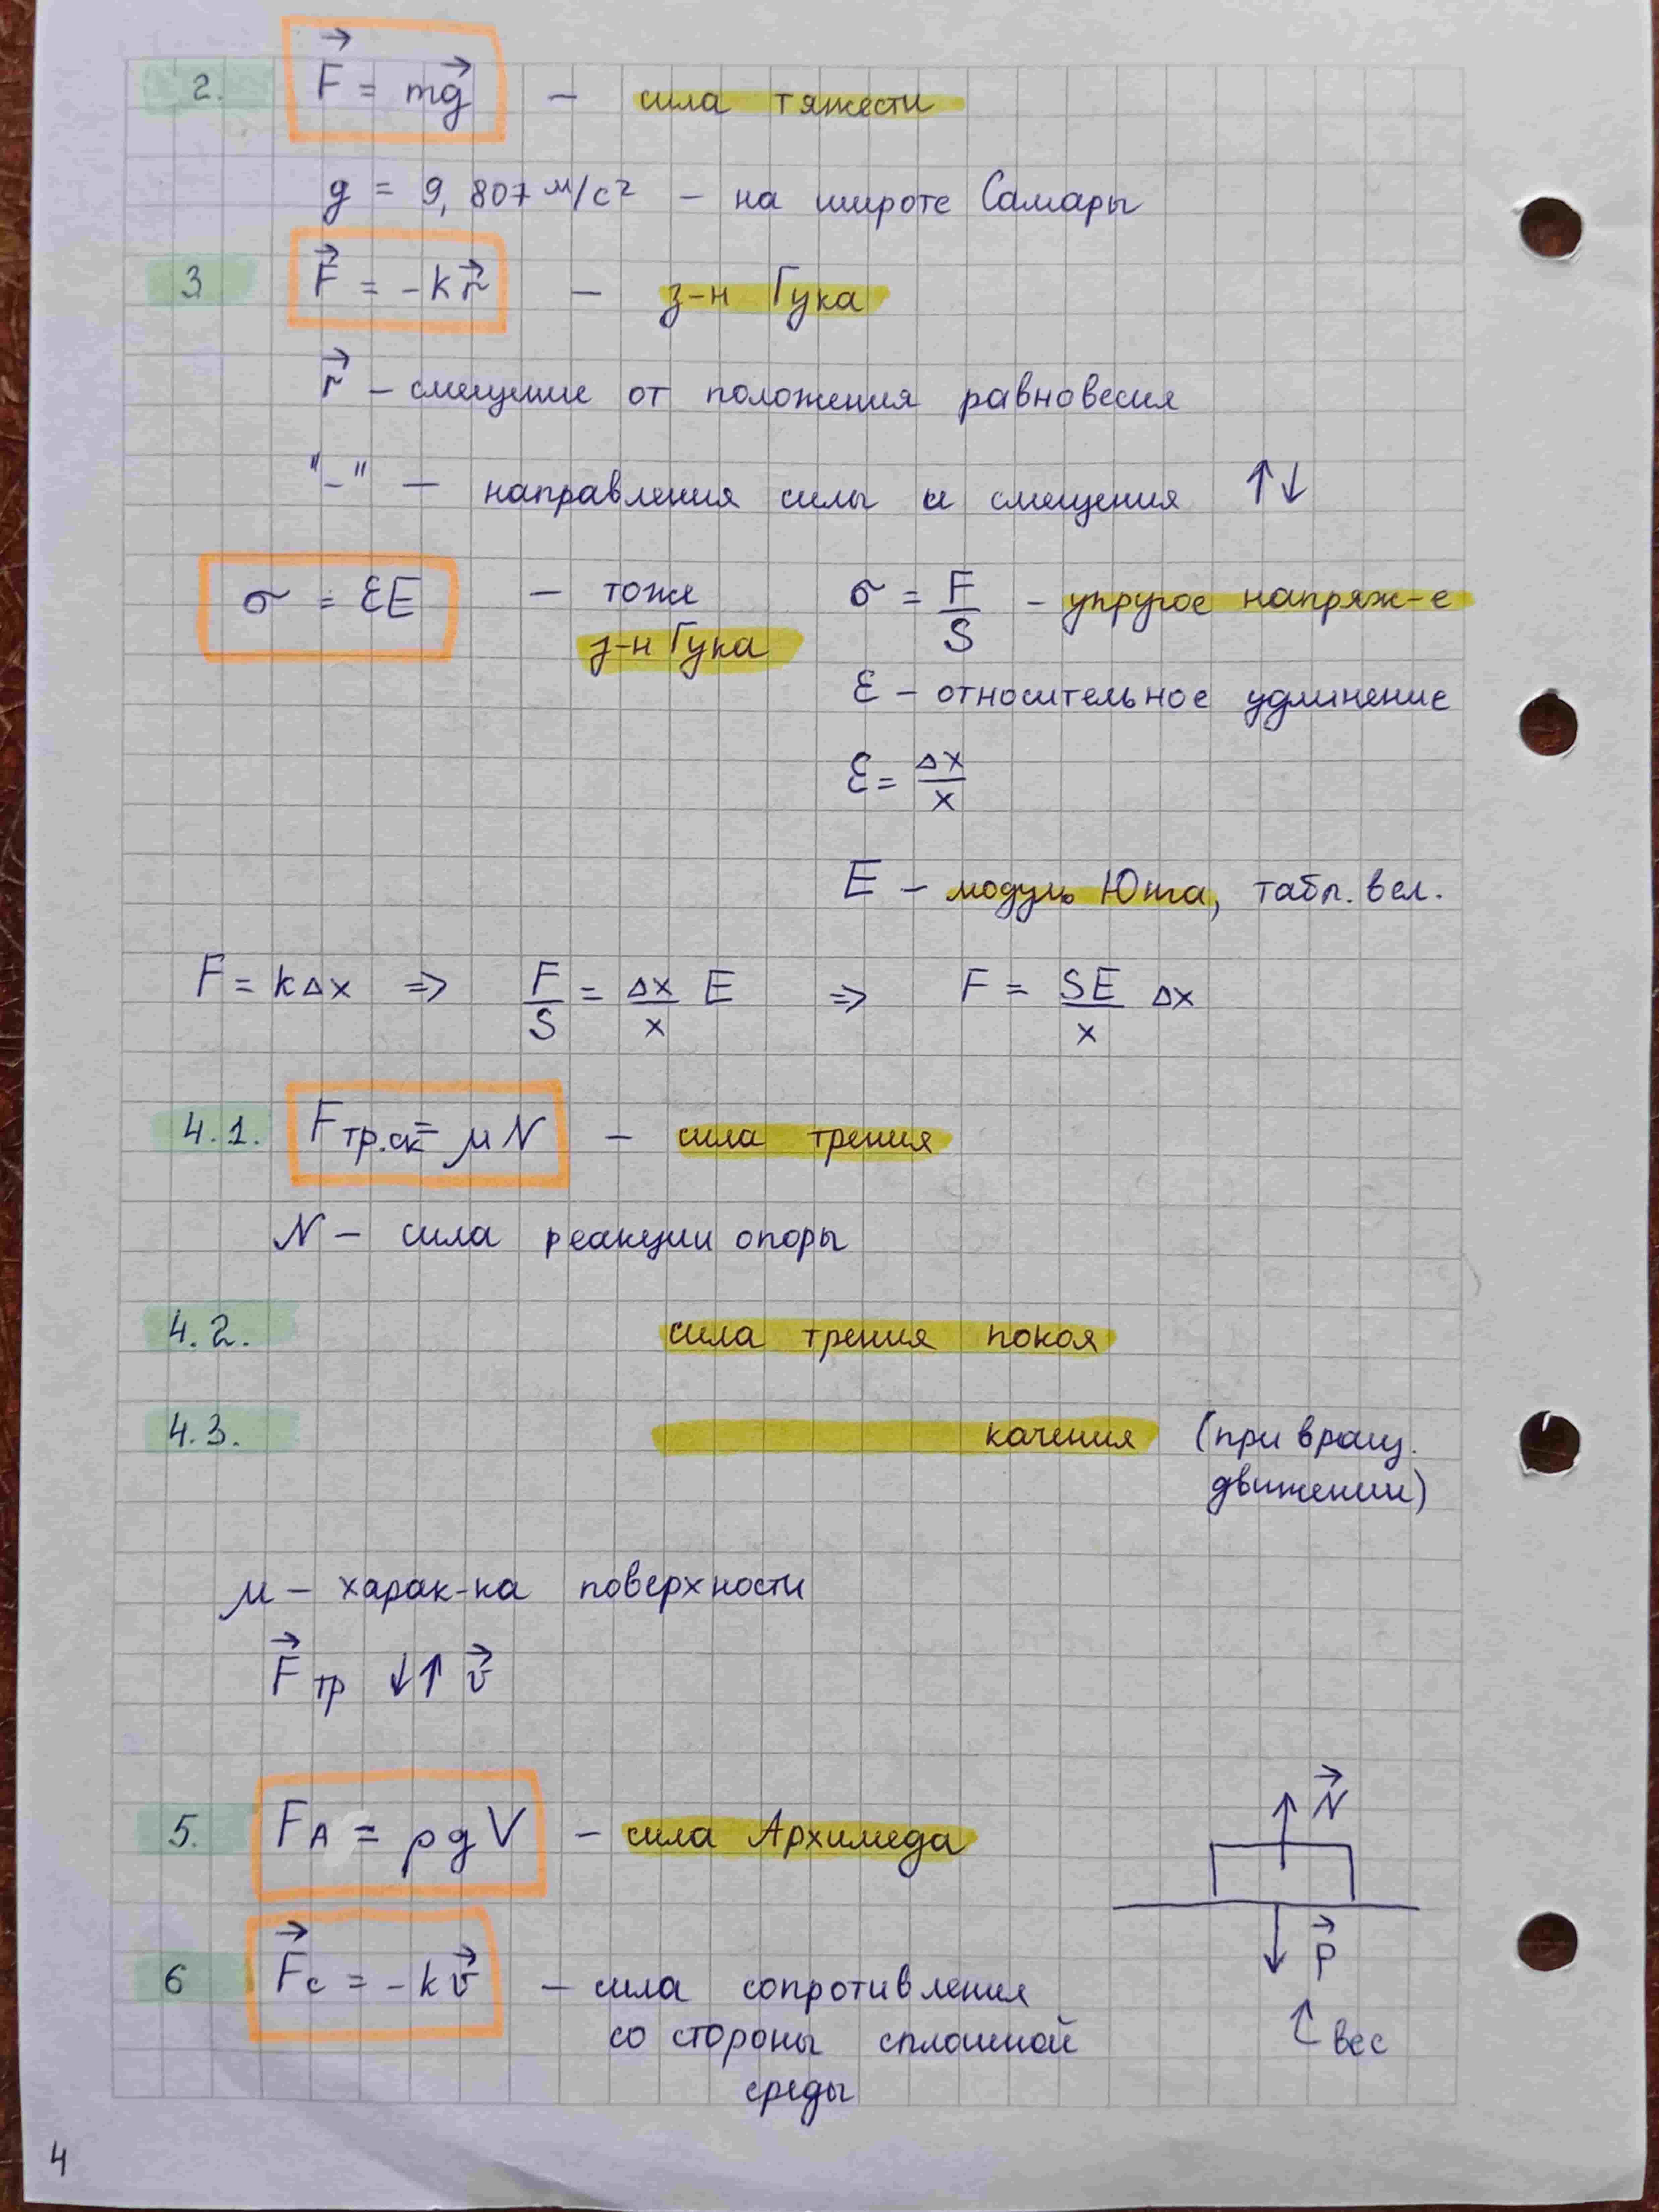 2. F⃗ = mg⃗ — сила тяжести
g = 9,807 м/с² — на широте Самары
3 F⃗ = -kr⃗ — з-н Гука
r⃗ — смещение от положения равновесия
"-" — направления силы и смещения ↑↓
σ = εE — тоже з-н Гука
σ = F/S — упругое напряж-е
ε — относительное удлинение
ε = Δx/x
E — модуль Юнга, табл. вел.
F = kΔx ⇒ F/S = Δx/x E ⇒ F = SE/x Δx
4.1. Fтр.ск = μN — сила трения
N — сила реакции опоры
4.2. сила трения покоя
4.3. качения (при вращ.
движении)
μ — харак-ка поверхности
F⃗тр ↓↑ v⃗
5. FA = ρgV — сила Архимеда
N⃗
P⃗
вес
6 F⃗c = -kv⃗ — сила сопротивления
со стороны сплошной
среды
4